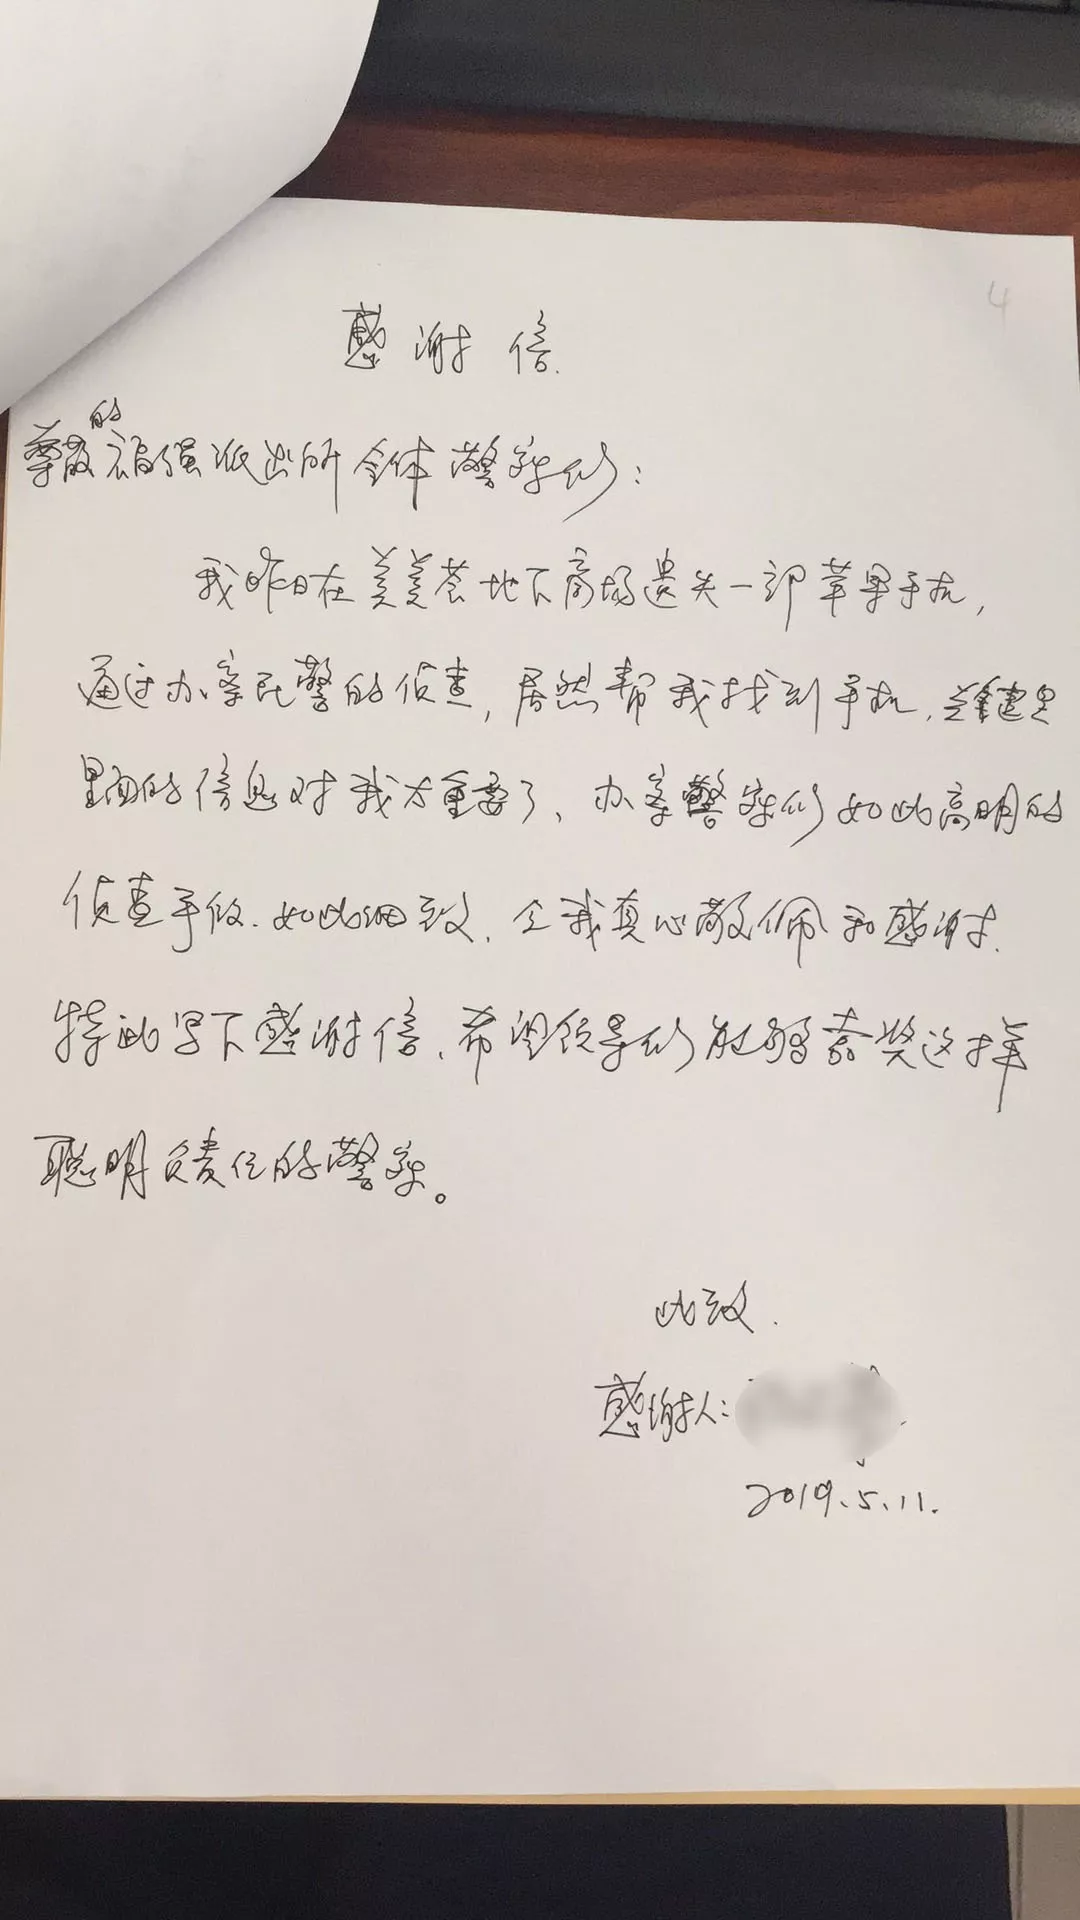 4
感谢信.
尊敬的福强派出所全体警察们:
我昨日在美美荟地下商场遗失一部苹果手机,
通过办案民警的侦查,居然帮我找到手机,关键是
里面的信息对我太重要了、办案警察们如此高明的
侦查手段.如此细致、令我真心敬佩和感谢.
特此写下感谢信、希望领导们能够嘉奖这样
聪明负责任的警察。
此致.
感谢人:
2019.5.11.